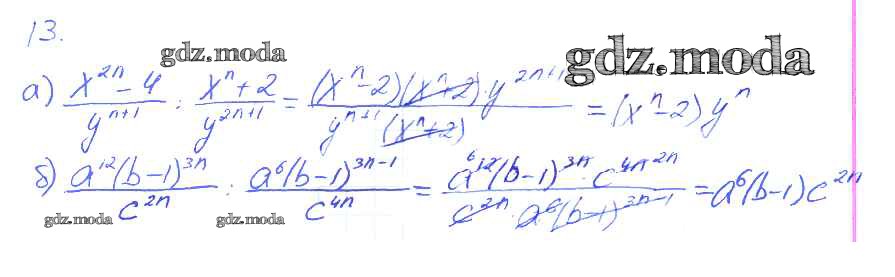 13.
gdz.moda
gdz.moda
а) (x^{2n} - 4)/(y^{n+1}) : (x^n + 2)/(y^{2n+1}) = ((x^n - 2)(x^n + 2) · y^{2n+1})/(y^{n+1} (x^n + 2)) = (x^n - 2) y^n
б) (a^{12}(b-1)^{3n})/(c^{2n}) : (a^6(b-1)^{3n-1})/(c^{4n}) = (a^{6 12}(b-1)^{3n} · c^{4n 2n})/(c^{2n} · a^6(b-1)^{3n-1}) = a^6(b-1)c^{2n}
gdz.moda gdz.moda